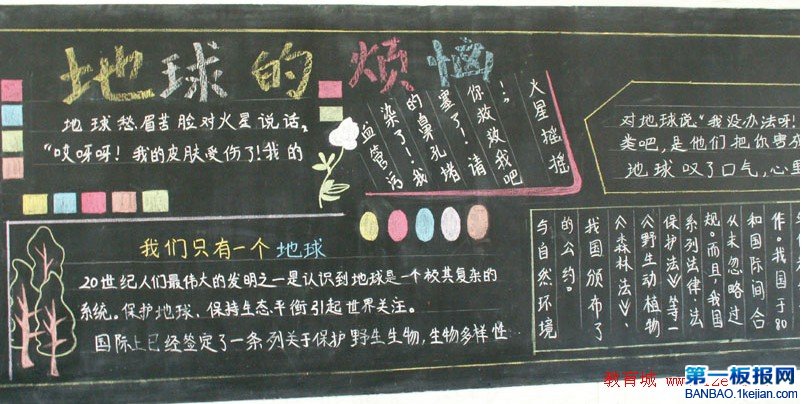 地球的烦恼
地球愁眉苦脸对火星说话，
“哎呀呀！我的皮肤受伤了！我的
血管污
染了！我
的鼻孔堵
塞了！请
你救救我吧
！”
火星摇摇
对地球说“我没办法呀！
类吧，是他们把你害
地球叹了口气，心里
我们只有一个地球
20世纪人们最伟大的发明之一是认识到地球是一个极其复杂的
系统。保护地球、保持生态平衡引起世界关注。
国际上已经签定了一条列关于保护野生生物，生物多样性
与自然环境
的公约。
我国颁布了
《森林法》、
《野生动植物
保护法》等一
系列法律、法
规。而且，我国
从未忽略过
和国际间合
作。我国于80
教育城
第一板报网
BANBAO.1kejian.com